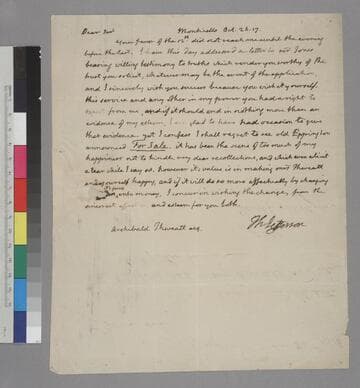 Dear Sir Monticello Oct. 26. 17.
Your favor of the 12th did not reach me until the evening
before the last. I have this day addressed a letter to
bearing willing testimony to truths which render you worthy of the
trust you solicit, whatever may be the event of the application,
and I sincerely wish you success because you wish it yourself.
this service and any other in my power you had a right to
from me, and if it should end in nothing more than an
evidence of my esteem, I am glad to have had occasion to give
that evidence. yet I confess I shall regret to see old Eppington
announced For Sale. it has been the scene of too much of my
happiness not to kindle very dear recollections, and which
a tear while I say so. however its value is in making mrs Thweatt
and yourself happy, and if it will do so more effectually by changing
into money, I concur in wishing the change, from the
sincerest and esteem for you both.
Th: Jefferson
Archibald Thweatt esq.